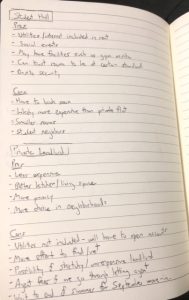 Student Hall
Pros
- Utilities / internet included in rent
- Social events
- May have facilities such as gym
- Can trust rooms to be at certain standard
- Onsite security
Cons
- Have to book soon
- Likely more expensive than private flat
- Smaller rooms
- Student neighbours
Private Landlord
Pros
- Less expensive
- Better kitchen / living space
- More privacy
- More choice in neighborhoods
Cons
- Utilities not included - will have to open
- More effort to find first
- Possibility of sketchy / unresponsive landlord
- Agent fees if we go through letting agent
- Wait to end of summer for September move-in